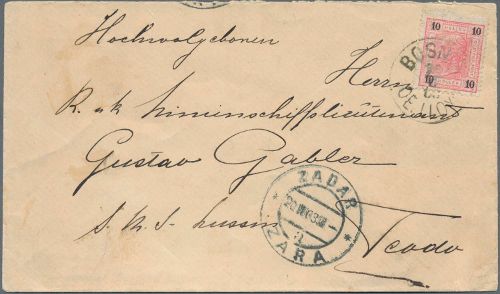 Hochwolgeboren
Herrn
K. u k Linienschiffslieutenant
Gustav Gabler
S. M. S. Lussin
Teodo
10 10
10 10
BOSN
ZADAR
20
ZARA